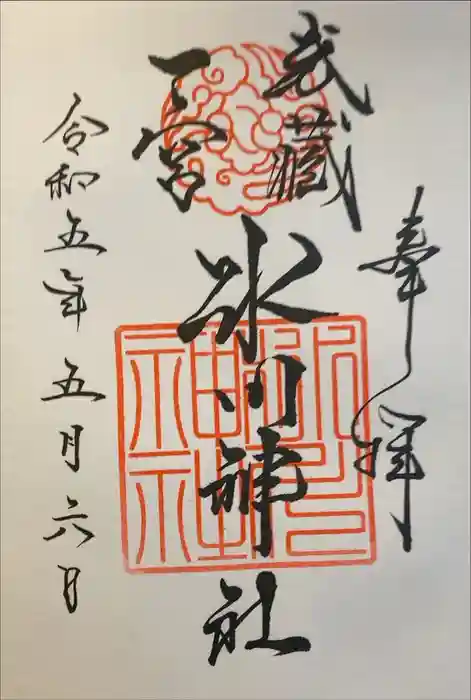 奉拝
武蔵
一宮
氷川神社
令和五年五月六日